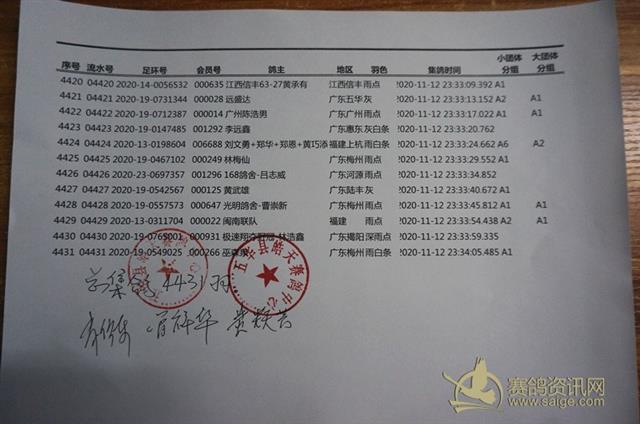 序号 流水号 足环号 会员号 鸽主 地区 羽色 集鸽时间 小团体分组 大团体分组
4420 04420 2020-14-0056532 000635 江西信丰63-27黄承有 江西信丰 雨点 !020-11-12 23:33:09.392 A1
4421 04421 2020-19-0731344 000028 远盛达 广东五华 灰 !020-11-12 23:33:13.152 A2 A1
4422 04422 2020-19-0712387 000014 广州陈浩男 广东广州 雨点 !020-11-12 23:33:17.022 A1 A1
4423 04423 2020-19-0147485 001292 李远鑫 广东惠东 灰白条 !020-11-12 23:33:20.762
4424 04424 2020-13-0198604 006688 刘文勇+郑华+郑恩+黄巧添 福建上杭 雨白条 !020-11-12 23:33:24.662 A6 A2
4425 04425 2020-19-0467102 000249 林梅仙 广东梅州 雨点 !020-11-12 23:33:29.552 A1
4426 04426 2020-23-0697357 001296 168鸽舍-吕志威 广东河源 雨点 !020-11-12 23:33:34.852
4427 04427 2020-19-0542567 000125 黄武雄 广东陆丰 灰 !020-11-12 23:33:40.672 A1
4428 04428 2020-19-0557573 000647 光明鸽舍-曹崇新 广东梅州 雨点 !020-11-12 23:33:45.812 A1 A1
4429 04429 2020-13-0311704 000022 闽南联队 福建 雨点 !020-11-12 23:33:54.438 A2 A1
4430 04430 2020-19-0765001 000931 极速翔 林浩鑫 广东揭阳 深雨点 !020-11-12 23:33:59.335
4431 04431 2020-19-0549025 000266 巫 广东梅州 雨白条 !020-11-12 23:34:05.485 A1
五华县皓天赛鸽中心
4431羽
赛鸽资讯网
www.saige.com